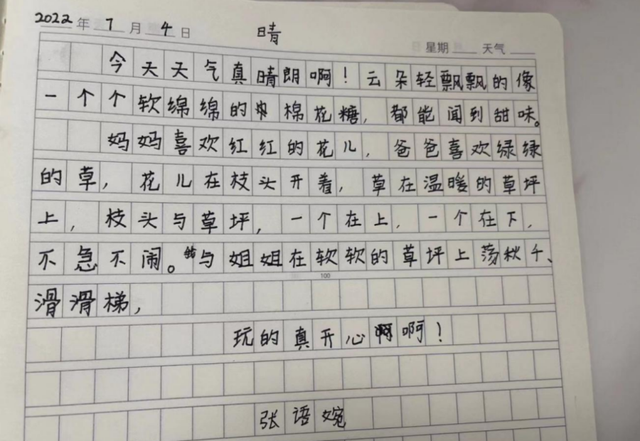 2022年7月4日 晴 星期 天气
今天天气真晴朗啊！云朵轻飘飘的像
一个个软绵绵的棉花糖，都能闻到甜味。
妈妈喜欢红红的花儿，爸爸喜欢绿绿
的草，花儿在枝头开着，草在温暖的草坪
上，枝头与草坪，一个在上，一个在下，
不急不闹。与姐姐在软软的草坪上荡秋千、
100
滑滑梯，
玩的真开心啊！
张语婉